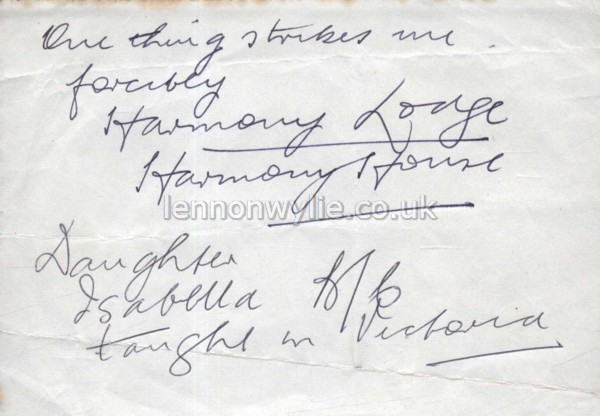 One thing strikes me
forcibly
Harmony Lodge
Harmony House
lennonwylie.co.uk
Daughter
Isabella
taught in Victoria